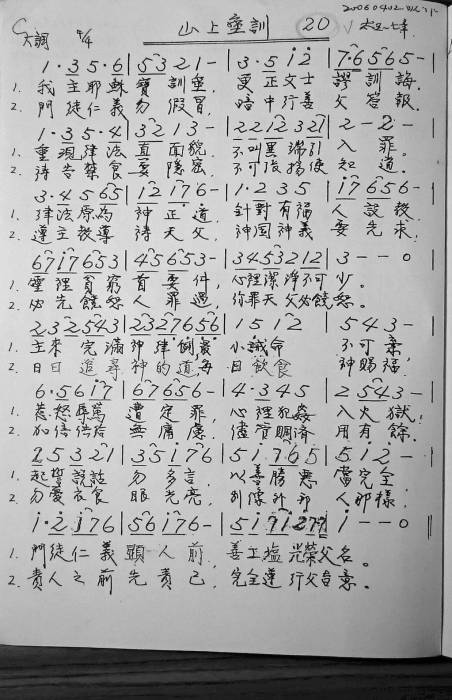 20060402
C大調 4/4 山上垒訓 20
1·35·6|5321-|3·5i2|7·6565-
1. 我主耶穌寶訓垒, 更正文士謬訓誨,
2. 門徒仁義勿假冒, 暗中行善父答報,
1·35·4|3213-|2212321|2-2-
1. 重現律法真面貌, 不叫黑端引入罪。
2. 禱告禁食要隱密 不可
3·4565|12i76-|1·235|i7656-
1. 律法原為神正道, 針對有福人說教,
2. 遵主教導禱天父, 神国神義要先求,
67i7653|45653-|3453212|3--0
1. 靈裡貧窮首要件, 心裡潔淨不可少。
2. 必先饒恕人罪過, 你罪天父必饒恕。
232543|2327656|15i2|543-
1. 主來完滿神律例 小誡命 不可棄
2. 日日追尋神的道 日飲食 神賜福,
6·56i7|67656-|4·345|2543-
1. 惹怒辱罵遭定罪 心裡犯姦入火獄,
2. 加倍倍给無庸慮, 儘管賙济用有餘,
25321|35i76|5i765|5i2-
1. 起誓說話勿多言, 以善勝惡當完全
2. 勿愛衣食眼光亮, 別像外邦人那樣,
i·2i76|56i76-|
1. 門徒仁義顯人前, 善工塩光榮父名。
2. 責人之前先責己, 完全遵行父旨意。